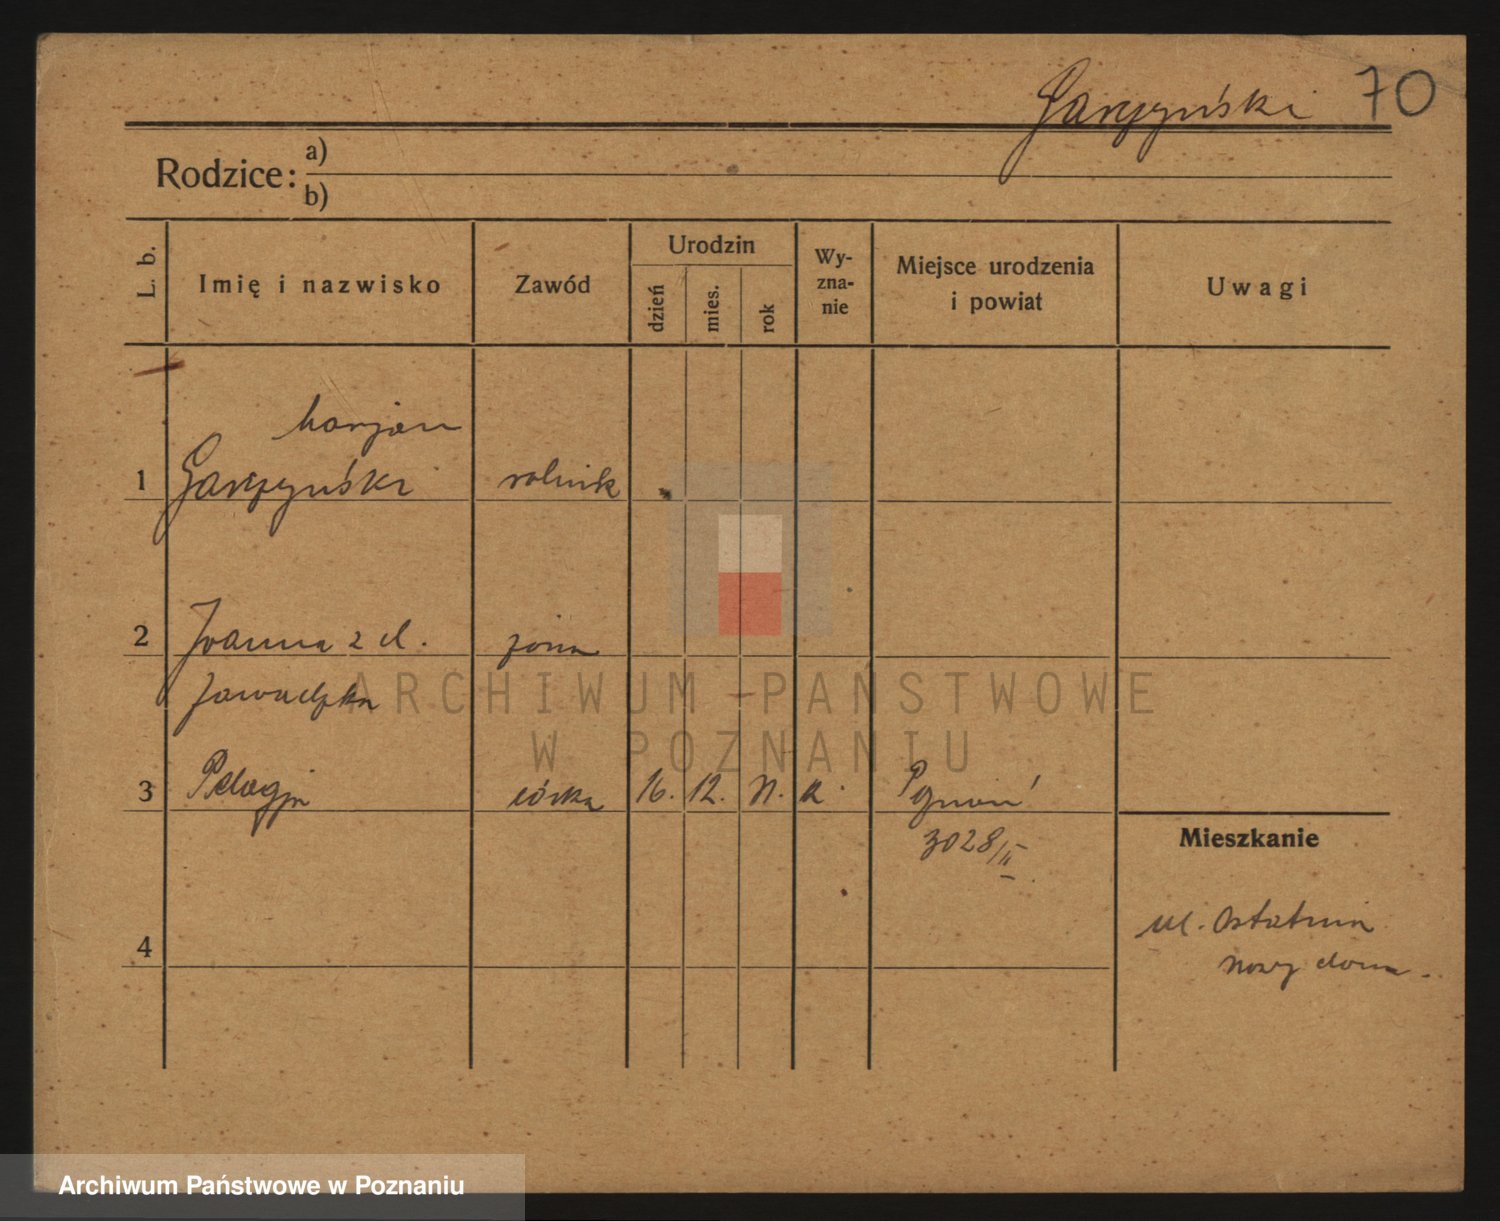 Garczyński 70
Rodzice: a)
b)
L. b.
Imię i nazwisko
Zawód
Urodzin
dzień
mies.
rok
Wy-
zna-
nie
Miejsce urodzenia
i powiat
Uwagi
Marjan
1 Garczyński rolnik
2 Joanna z d. żona
Zawadzka
ARCHIWUM PAŃSTWOWE
W POZNANIU
3 Pelagja córka 16. 12. K. Poznań
3028/II
Mieszkanie
4
ul. Ostatnia
nowy dom.
Archiwum Państwowe w Poznaniu